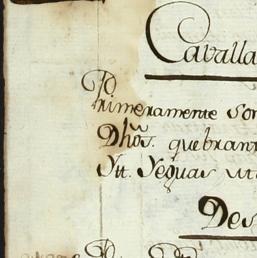 Cavalla
Primeramente son
Dhõs. quebrant
Ytt. Yeguas uti
Des